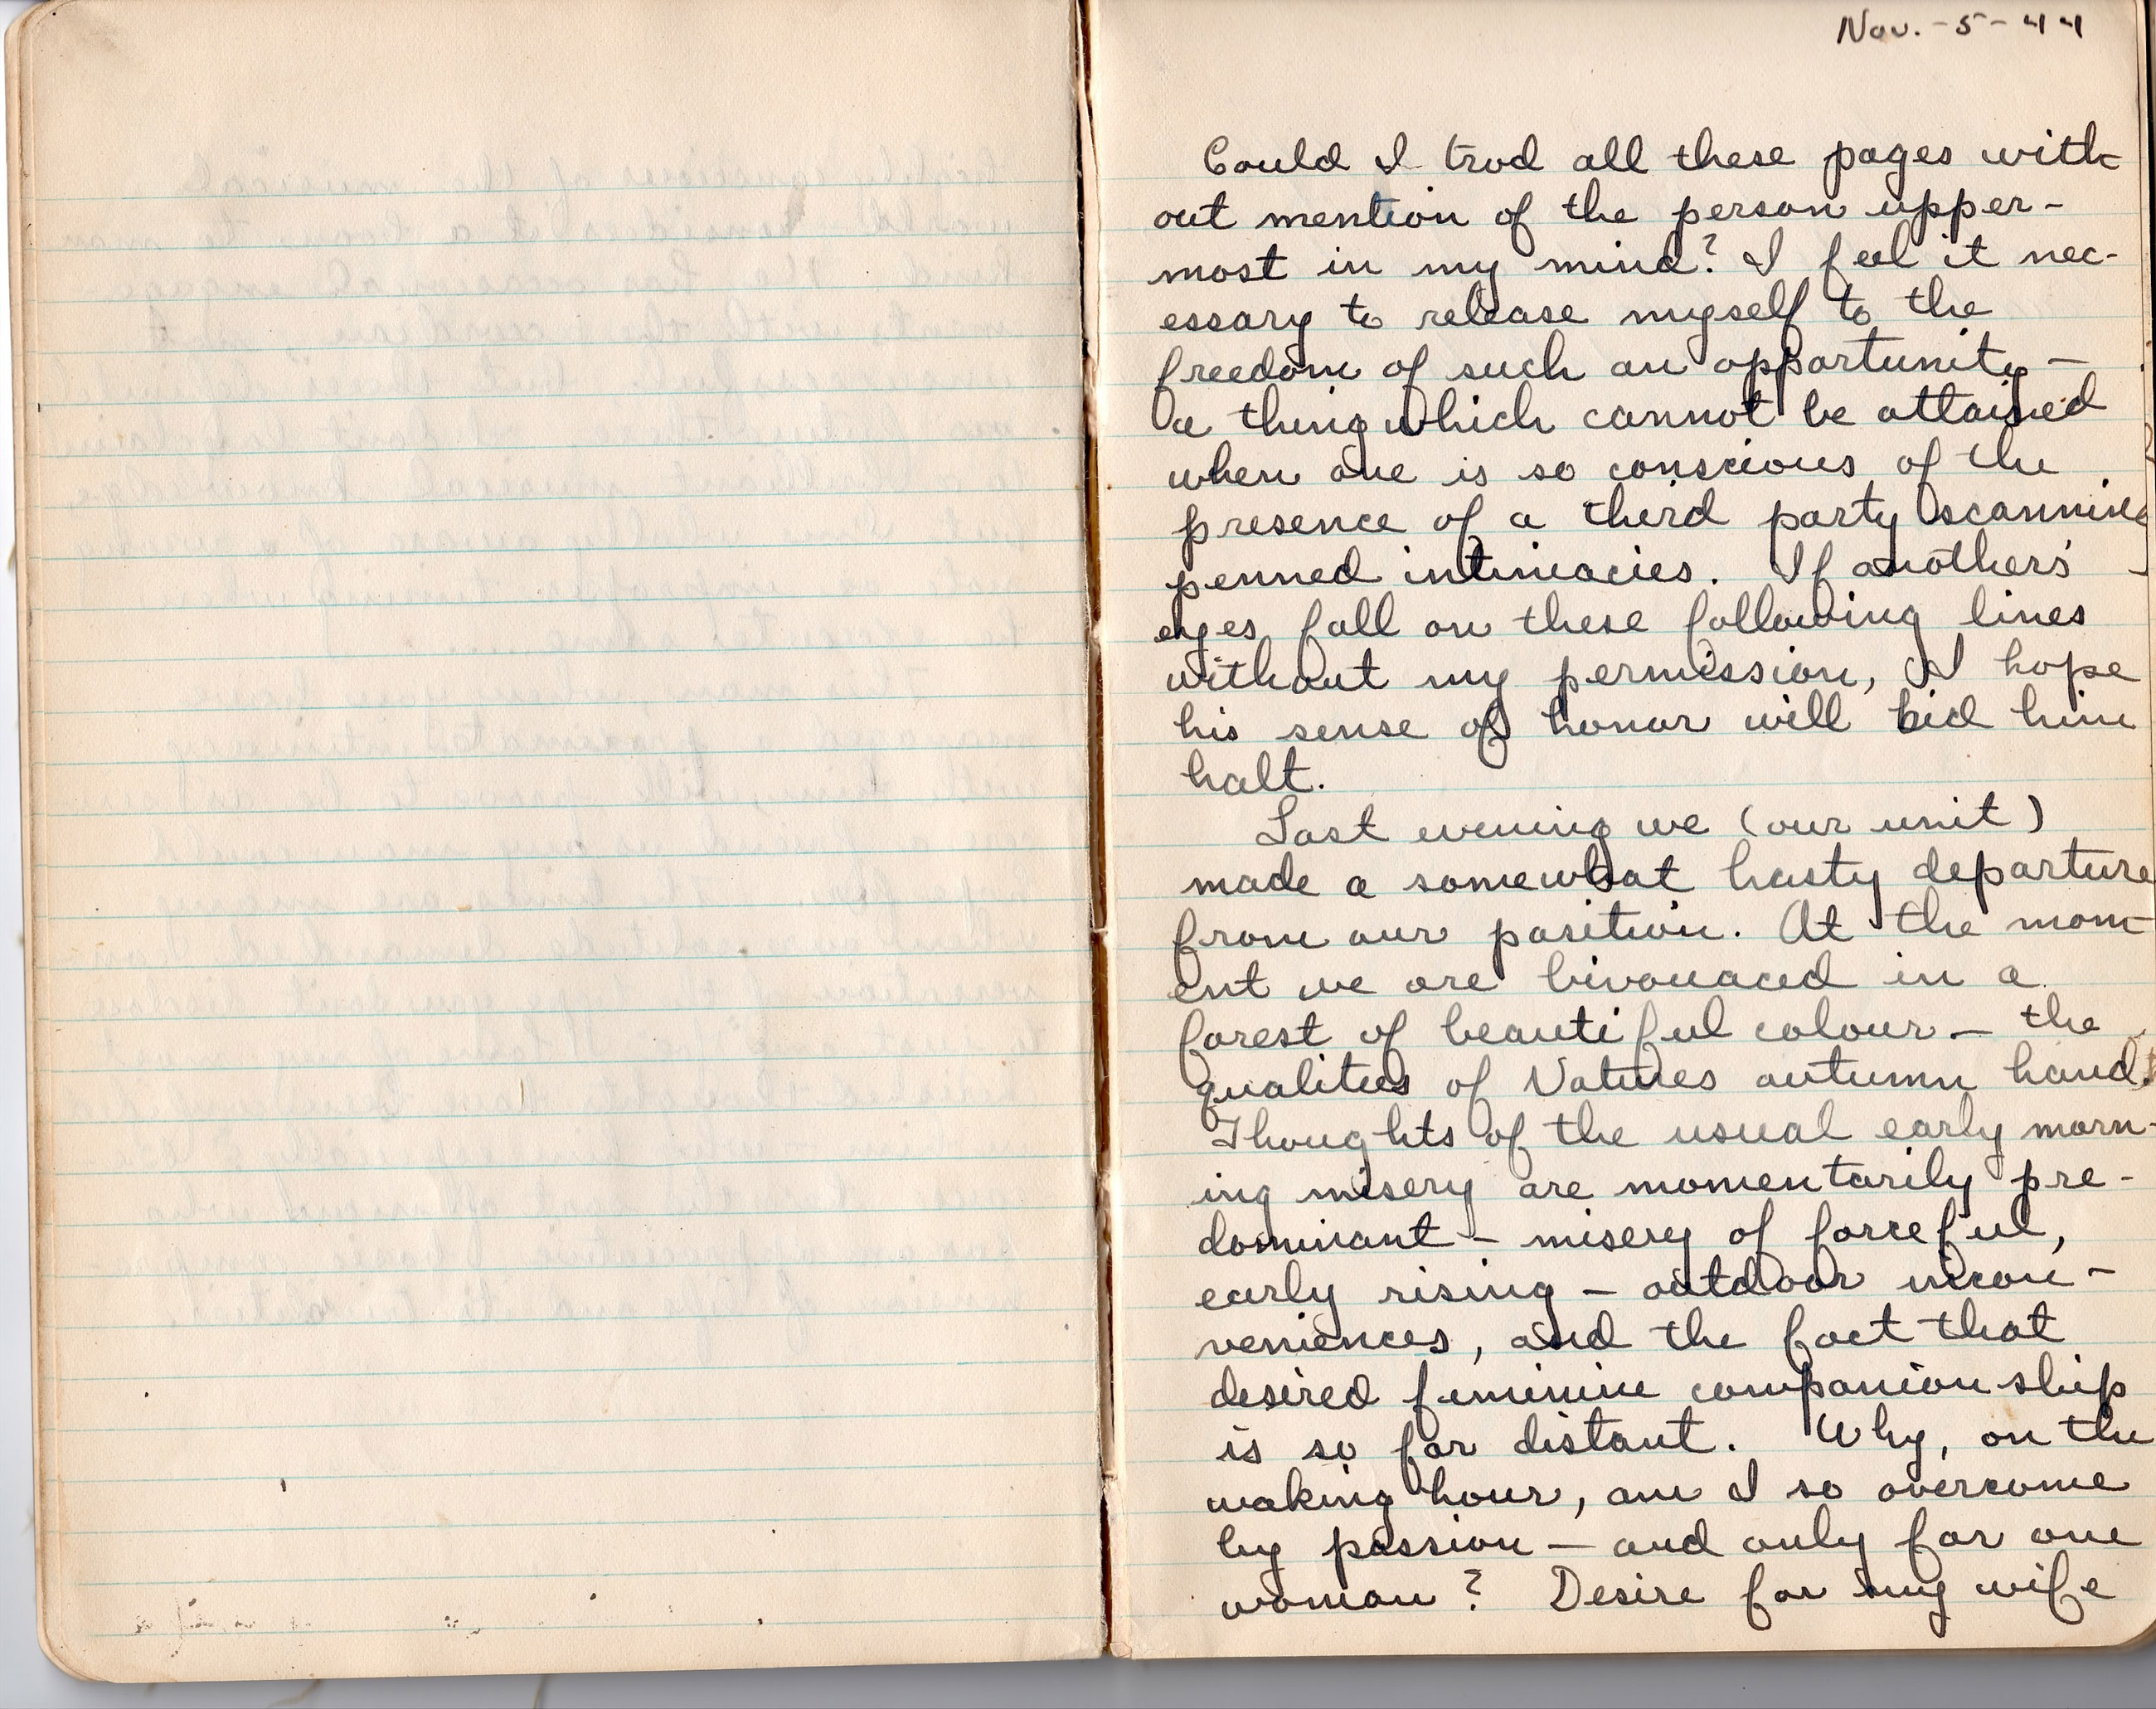 Nov. - 5 - 44
Could I trod all these pages with-
out mention of the person upper-
most in my mind? I feel it nec-
essary to release myself to the
freedom of such an opportunity —
a thing which cannot be attained
when one is so conscious of the
presence of a third party scanning
penned intimacies. If anothers'
eyes fall on these following lines
without my permission, I hope
his sense of honor will bid him
halt.
Last evening we (our unit)
made a somewhat hasty departure
from our position. At the mom-
ent we are bivouaced in a
forest of beautiful colour — the
qualities of Natures autumn hand.
Thoughts of the usual early morn-
ing misery are momentarily pre-
dominant — misery of forceful,
early rising — outdoor incon-
veniences, and the fact that
desired feminine companionship
is so far distant. Why, on the
waking hour, am I so overcome
by passion — and only for one
woman? Desire for my wife